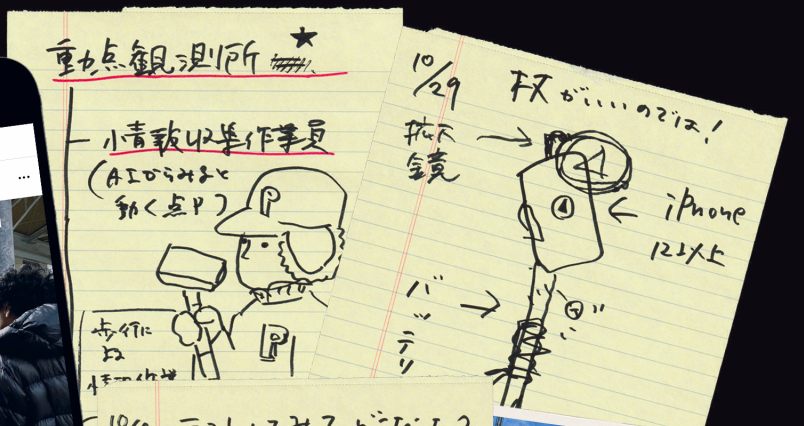 動点観測所
情報収集作業員
(AIからみると
動く点P)
P
P
歩行に
よる
10/29
杖がいいのでは!
拡大
鏡
iPhone
12以上
バッテリ